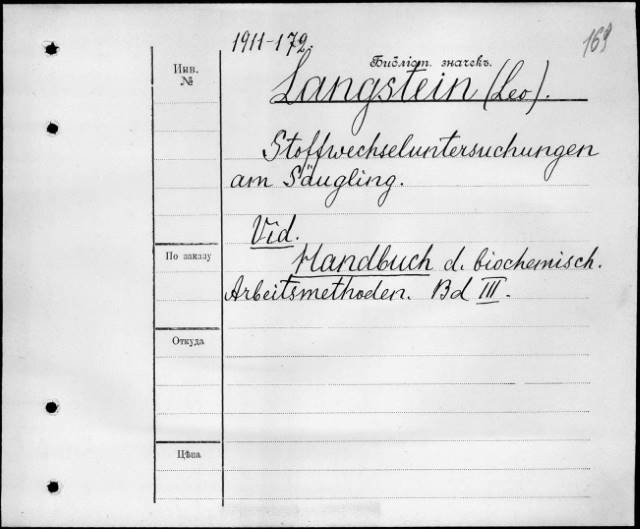 1911-172.
169
Инв.
№
Библіот. значекъ.
Langstein (Leo).
Stoffwechseluntersuchungen
am Säugling.
Vid.
Handbuch d. biochemisch.
По заказу
Arbeitsmethoden. Bd III.
Откуда
Цѣна